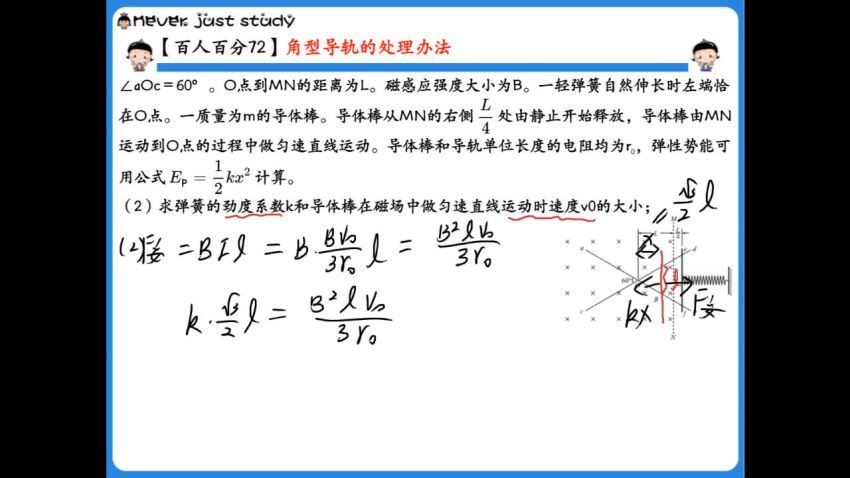 Never just study
【百人百分72】角型导轨的处理办法
∠aOc=60°。O点到MN的距离为L。磁感应强度大小为B。一轻弹簧自然伸长时左端恰
在O点。一质量为m的导体棒。导体棒从MN的右侧 L/4 处由静止开始释放，导体棒由MN
运动到O点的过程中做匀速直线运动。导体棒和导轨单位长度的电阻均为r₀，弹性势能可
用公式 Eₚ = 1/2 kx² 计算。
（2）求弹簧的劲度系数k和导体棒在磁场中做匀速直线运动时速度v0的大小；
(2) F安 = BIl = B·Bv₀/3r₀ l = B²lv₀/3r₀
k·√3/2 l = B²lv₀/3r₀
√3/2 l
M
a
d
x
60°
l
B
c
kx
F安
N